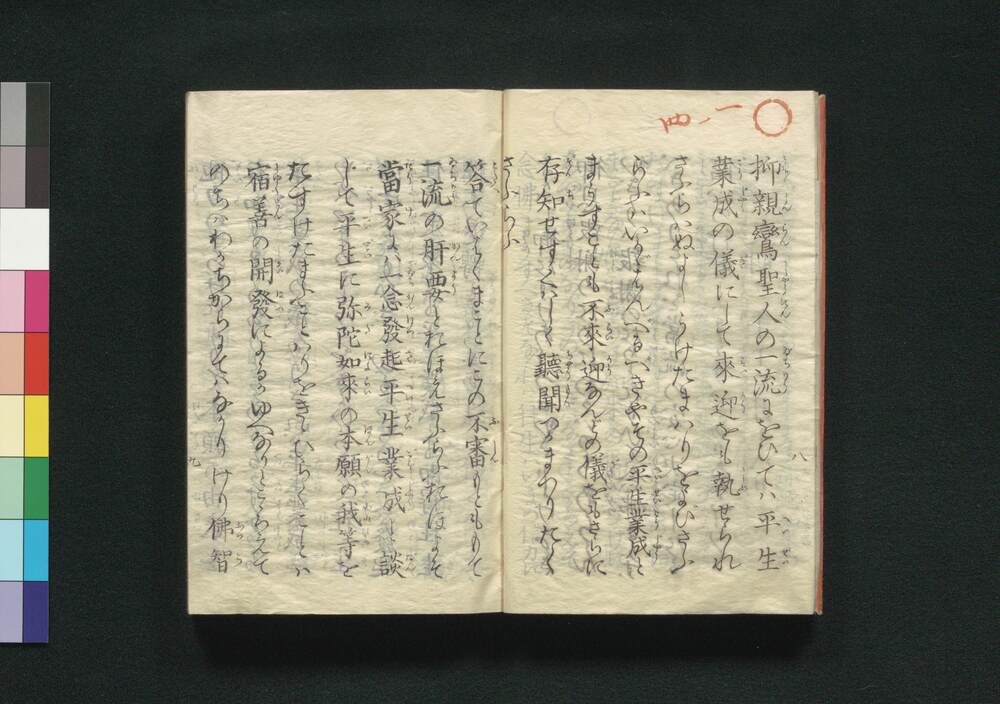 一ノ四
八
抑親鸞聖人の一流にをひてハ平生
業成の儀にして來迎をも執せられ
さふらハぬよしうけたまハりをよひさふ
らふハいかゝはんへるへきやその平生業成と
まうすことも不來迎なんとの儀をもさらに
存知せすくハしく聽聞つかまつりたく
さふらふ
答ていはくまことにこの不審もとももて
一流の肝要とおほえさふらふおほよそ
當家にハ一念發起平生業成と談
して平生に弥陀如來の本願の我等を
たすけたまふことハりをきゝひらくことハ
宿善の開發によるかゆへなりとこゝろえて
のちハわかちからにてハなかりけり佛智
九